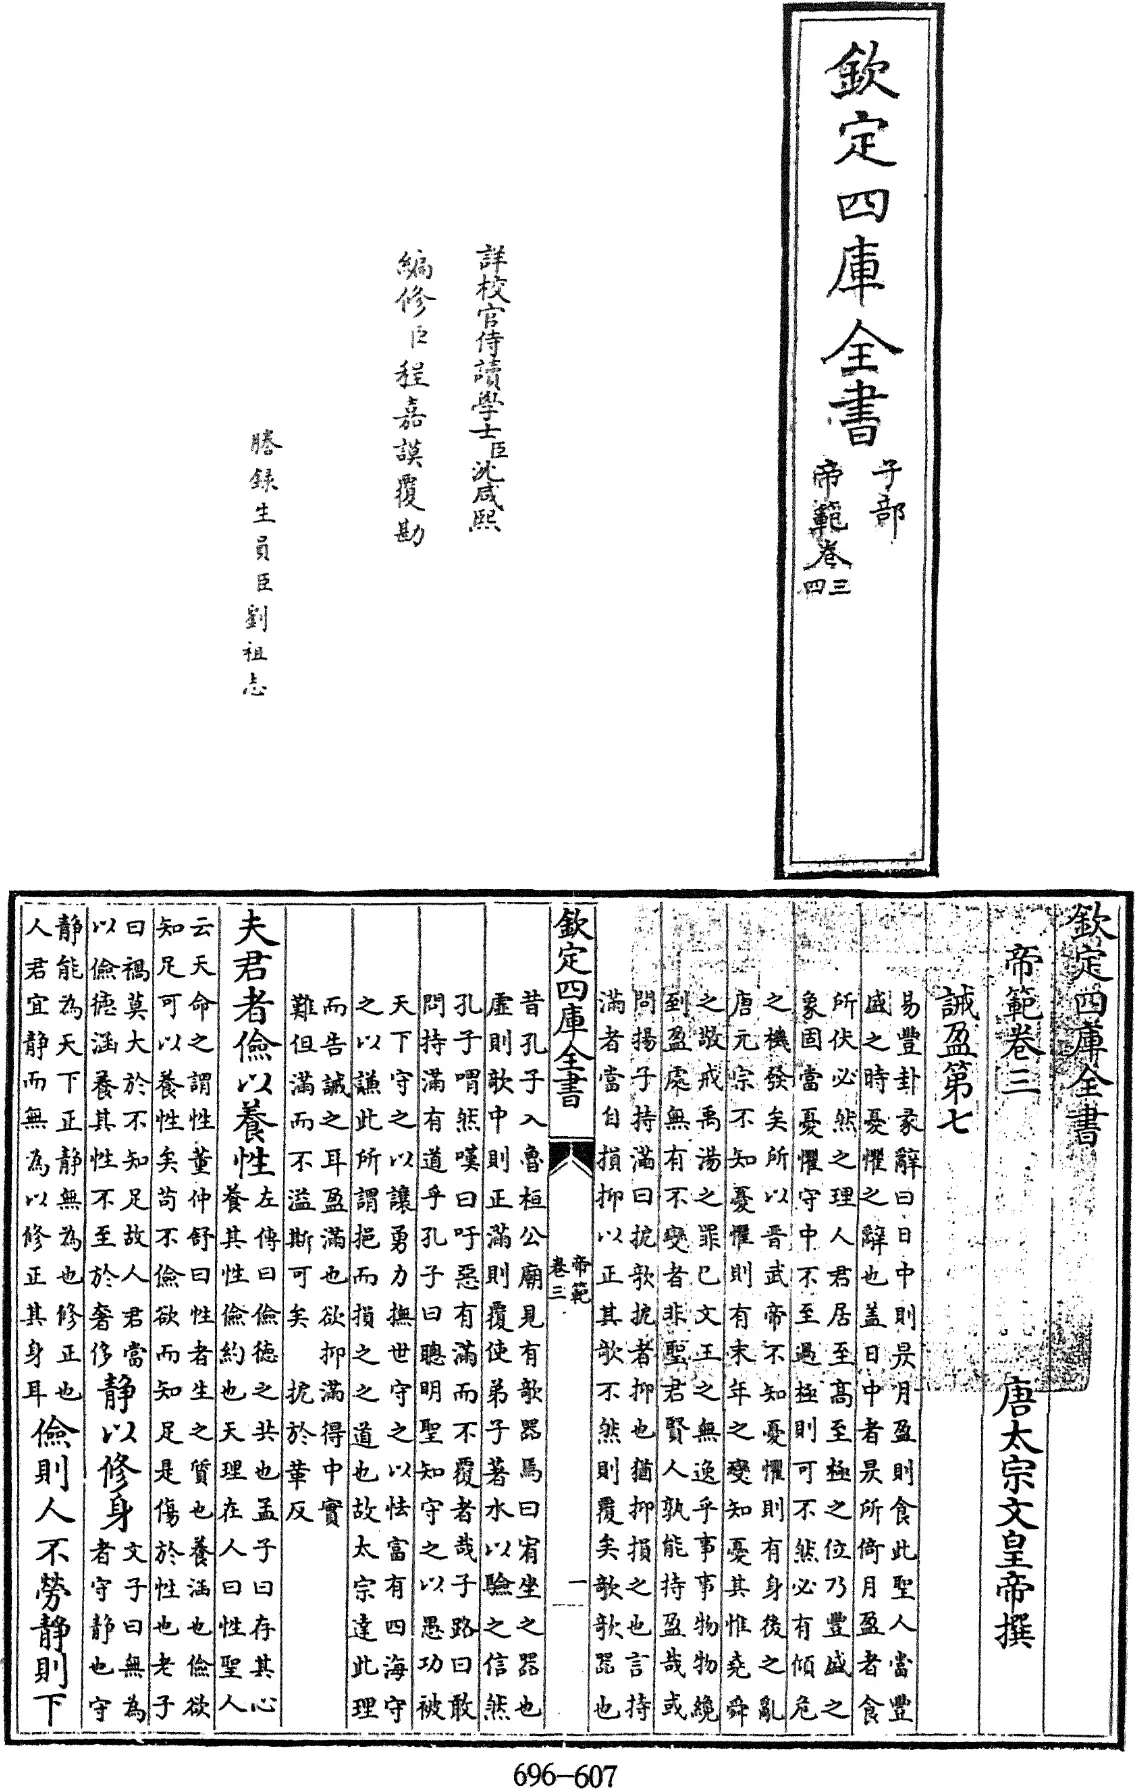 欽定四庫全書
子部
帝範卷三四
詳校官侍讀學士臣沈咸熙
編修臣程嘉謨覆勘
謄録生員臣劉祖志
欽定四庫全書
帝範卷三 唐太宗文皇帝撰
誡盈第七
易豐卦彖辭曰日中則昃月盈則食此聖人當豐
盛之時憂懼之辭也盖日中者昃所倚月盈者食
所伏必然之理人君居至高至極之位乃豐盛之
象固當憂懼守中不至過極則可不然必有傾危
之機發矣所以晋武帝不知憂懼則有身後之亂
唐元宗不知憂懼則有末年之變知憂其惟堯舜
之敬戒禹湯之罪已文王之無逸乎事事物物纔
到盈處無有不變者非聖君賢人孰能持盈哉或
問揚子持滿曰扼欹扼者抑也猶抑損之也言持
滿者當自損抑以正其欹不然則覆矣欹欹器也
欽定四庫全書
帝範
卷三
一
昔孔子入魯桓公廟見有欹器焉曰宥坐之器也
虛則欹中則正滿則覆使弟子著水以驗之信然
孔子喟然嘆曰吁惡有滿而不覆者哉子路曰敢
問持滿有道乎孔子曰聰明聖知守之以愚功被
天下守之以讓勇力撫世守之以怯富有四海守
之以謙此所謂挹而損之之道也故太宗達此理
而告誡之耳盈滿也欲抑滿得中實
難但滿而不溢斯可矣 扼於革反
夫君者儉以養性
左傳曰儉德之共也孟子曰存其心
養其性儉約也天理在人曰性聖人
云天命之謂性董仲舒曰性者生之質也養涵也儉欲
知足可以養性矣苟不儉欲而知足是傷於性也老子
曰禍莫大於不知足故人君當
以儉德涵養其性不至於奢侈
静以修身
文子曰無為
者守静也守
静能為天下正静無為也修正也
人君宜静而無為以修正其身耳
儉則人不勞静則下
696-607